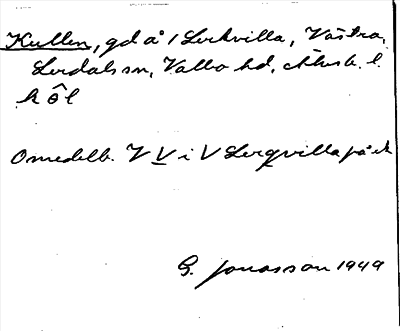 Kullen, gd å 1 Lerkvilla, Västra,
Lerdals sn, Valbo hd, Älvsb. l.
k ô l
Omedelb. V V i V Lerqvilla på ek
G. Jonasson 1949